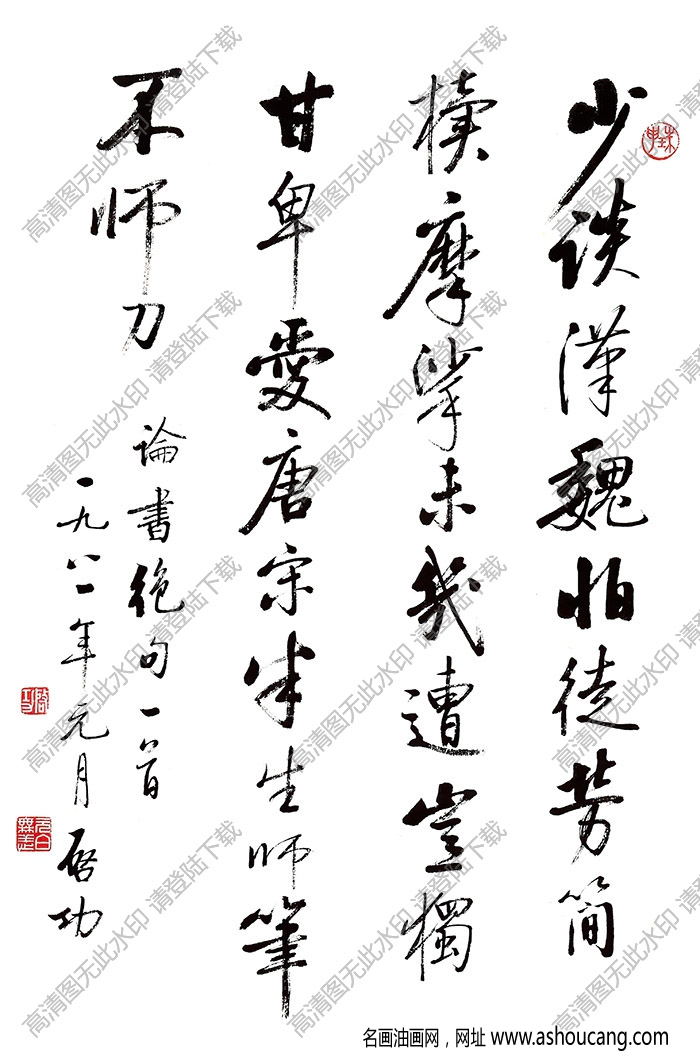 少谈漢魏怕徒劳簡
牘摩挲未幾遭豈獨
甘卑愛唐宋半生师筆
不师刀
論書絶句一首
一九八一年元月 启功
高清图无此水印 请登陆下载
名画油画网，网址 www.ashoucang.com